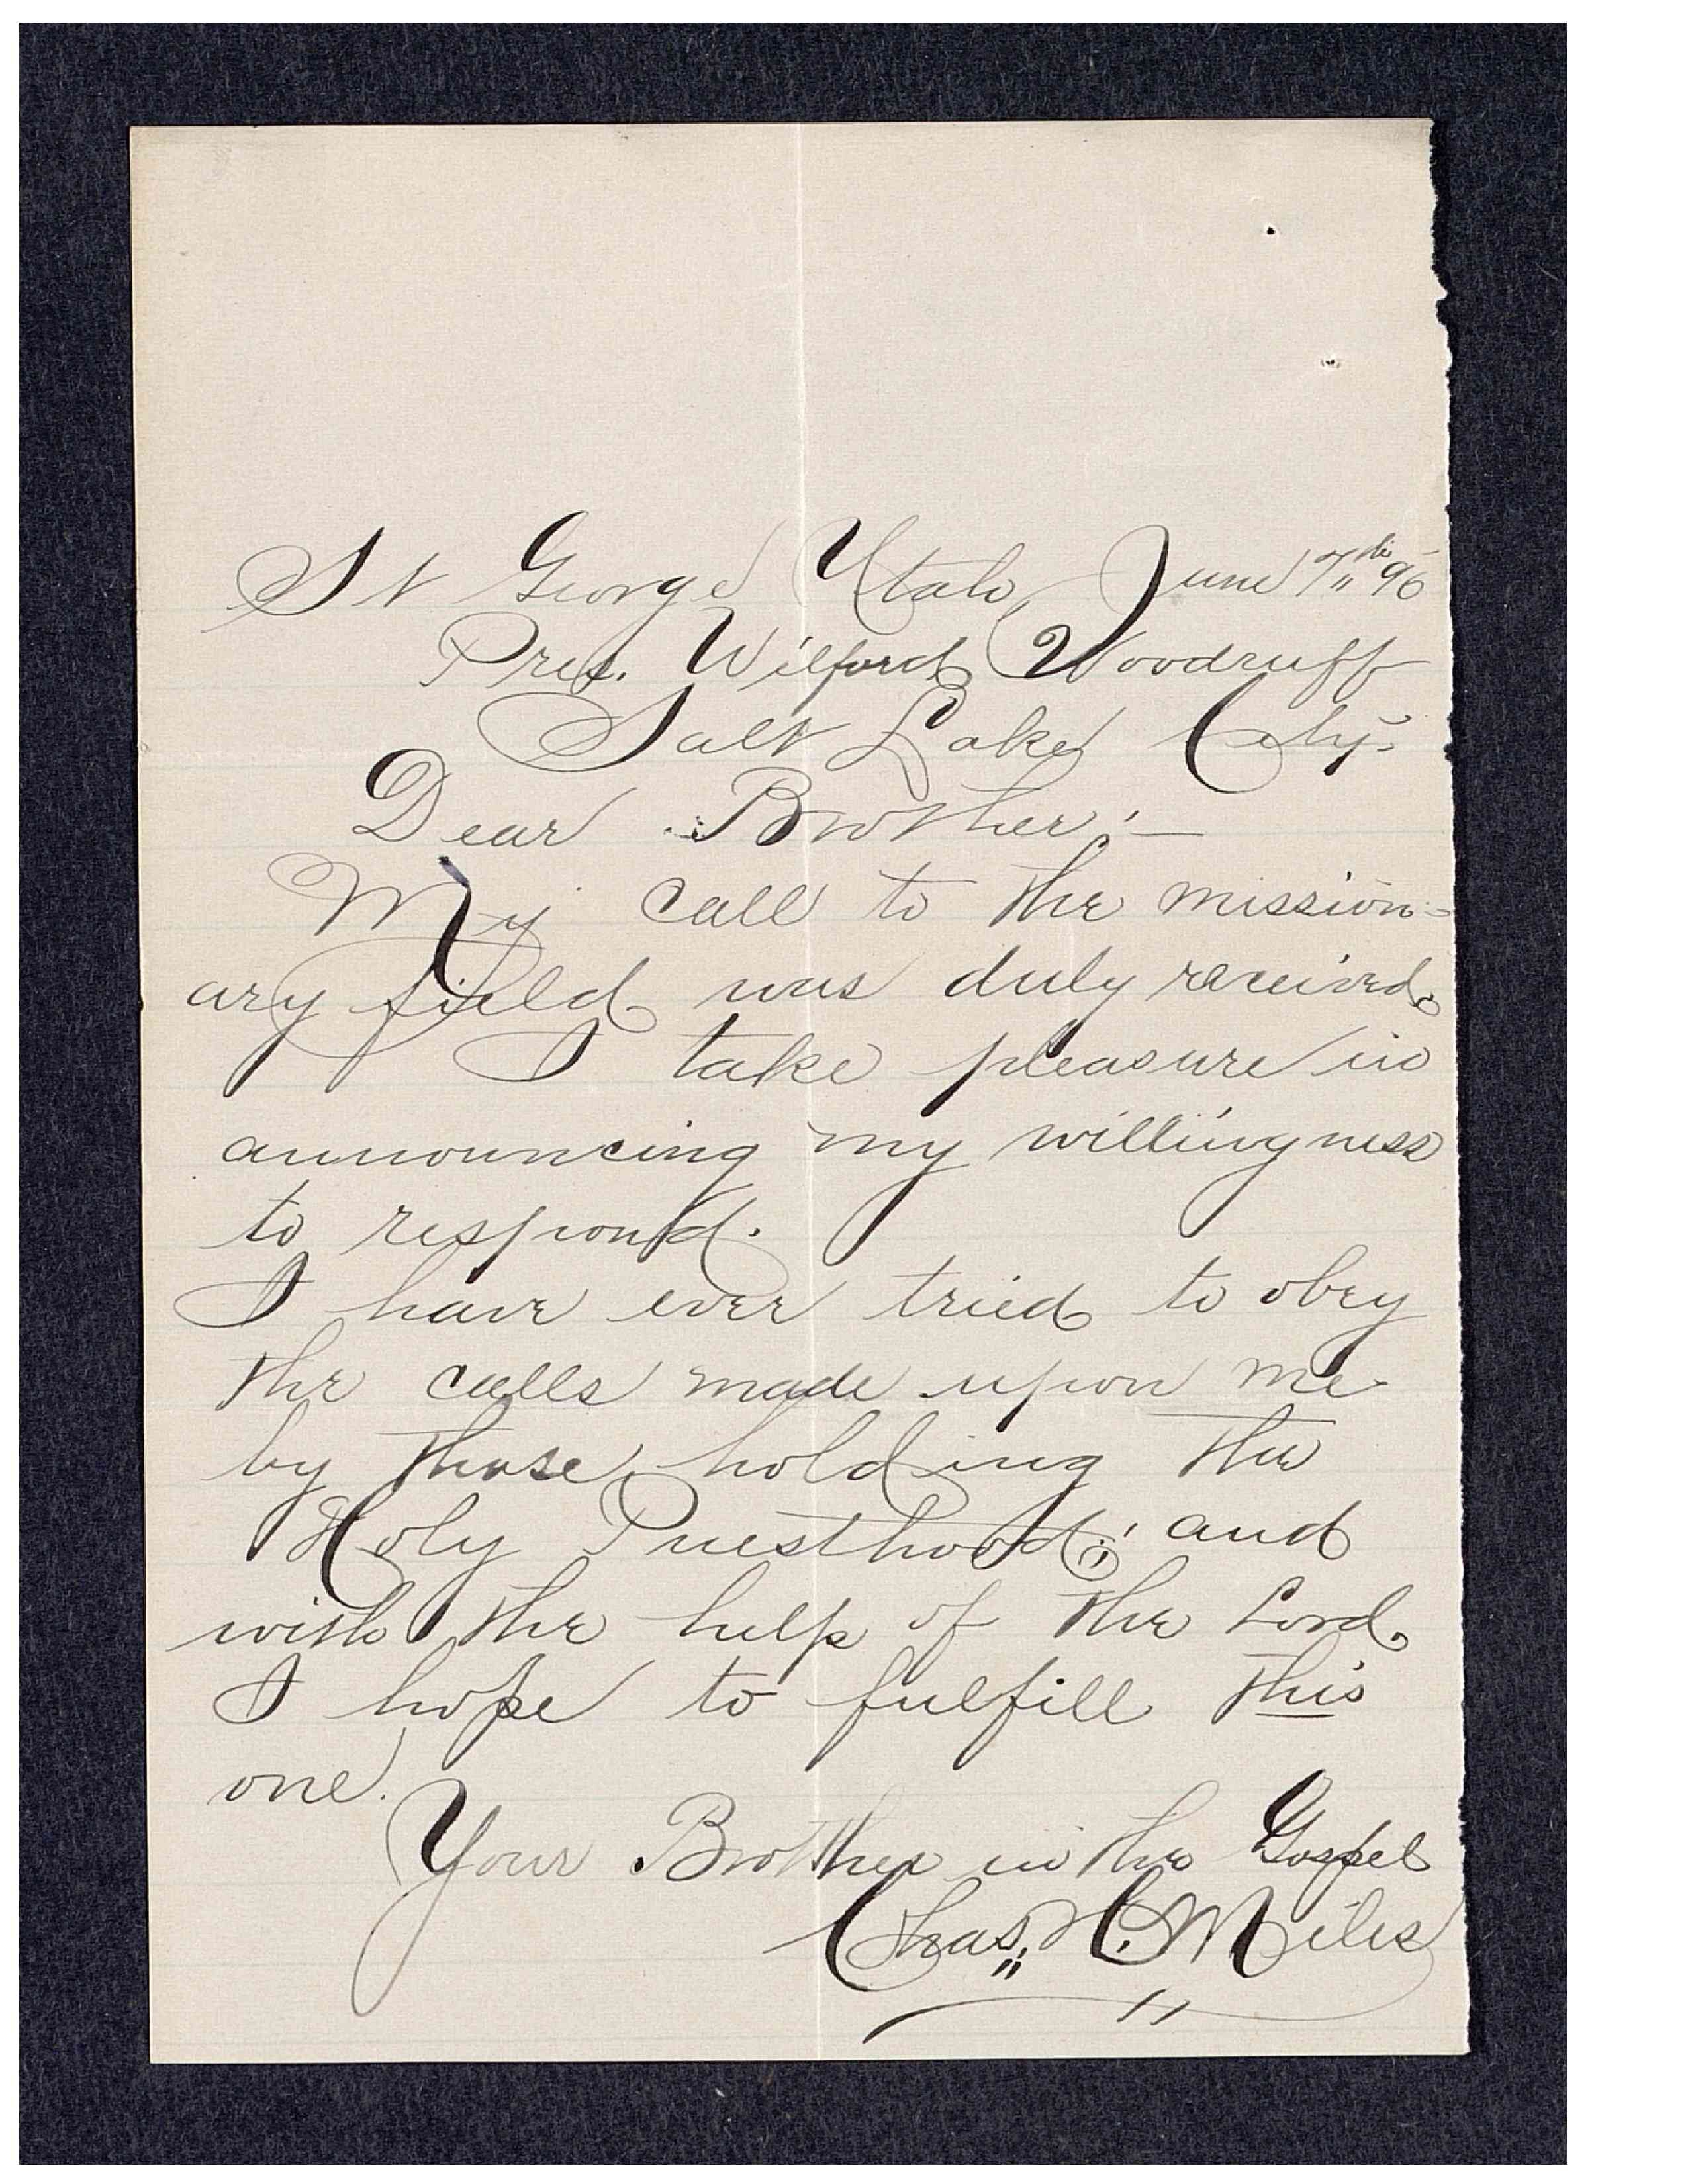 St George Utah, June 7th 96
Pres. Wilford Woodruff
Salt Lake City.
Dear Brother:—
My call to the mission-
ary field was duly received.
I take pleasure in
announcing my willingness
to respond.
I have ever tried to obey
the calls made upon me
by those holding the
Holy Priesthood; and
with the help of the Lord,
I hope to fulfill this
one.
Your Brother in the Gospel
Chas. H. Miles